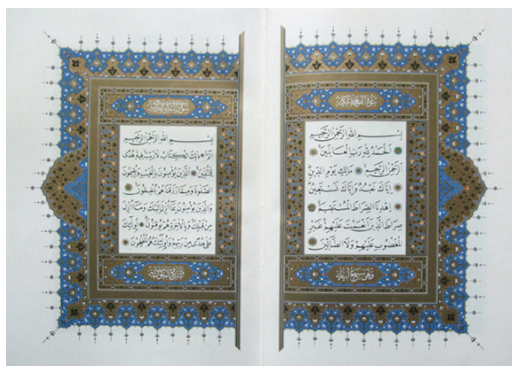 وهي سبع آيات
بِسْمِ اللهِ الرَّحْمٰنِ الرَّحِيمِ
اَلْحَمْدُ لِلّٰهِ رَبِّ الْعَالَمِينَ
اَلرَّحْمٰنِ الرَّحِيمِ مَالِكِ يَوْمِ الدِّينِ
اِيَّاكَ نَعْبُدُ وَاِيَّاكَ نَسْتَعِينُ
اِهْدِنَا الصِّرَاطَ الْمُسْتَقِيمَ
صِرَاطَ الَّذِينَ اَنْعَمْتَ عَلَيْهِمْ غَيْرِ
الْمَغْضُوبِ عَلَيْهِمْ وَلَا الضَّالِّينَ
بِسْمِ اللهِ الرَّحْمٰنِ الرَّحِيمِ
الٓمٓ ذٰلِكَ الْكِتَابُ لَا رَيْبَ فِيهِ هُدًى
لِلْمُتَّقِينَ اَلَّذِينَ يُؤْمِنُونَ بِالْغَيْبِ وَيُقِيمُونَ
الصَّلٰوةَ وَمِمَّا رَزَقْنَاهُمْ يُنْفِقُونَ
وَالَّذِينَ يُؤْمِنُونَ بِمَا اُنْزِلَ اِلَيْكَ وَمَا اُنْزِلَ
مِنْ قَبْلِكَ وَبِالْاٰخِرَةِ هُمْ يُوقِنُونَ اُولٰئِكَ
عَلٰى هُدًى مِنْ رَبِّهِمْ وَاُولٰئِكَ هُمُ الْمُفْلِحُونَ